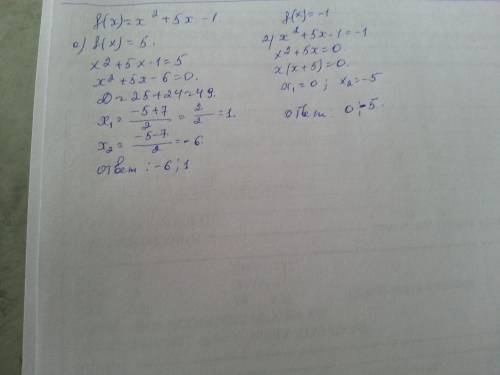 f(x) = x² + 5x - 1
а) f(x) = 5.
x² + 5x - 1 = 5
x² + 5x - 6 = 0.
D = 25 + 24 = 49.
x₁ = (-5+7)/2 = 2/2 = 1.
x₂ = (-5-7)/2 = -6
ответ: -6; 1
f(x) = -1
2) x² + 5x - 1 = -1
x² + 5x = 0.
x(x + 5) = 0.
x₁ = 0; x₂ = -5
ответ: 0; -5.